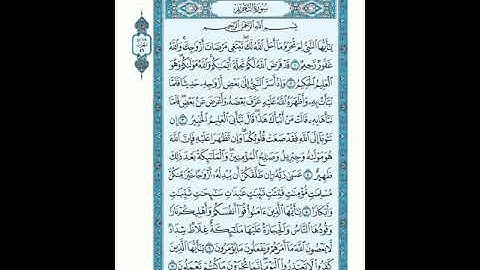 سُورَةُ التَّحْرِيمِ
بِسْمِ ٱللَّهِ ٱلرَّحْمَٰنِ ٱلرَّحِيمِ
يَٰٓأَيُّهَا ٱلنَّبِيُّ لِمَ تُحَرِّمُ مَآ أَحَلَّ ٱللَّهُ لَكَ ۖ تَبْتَغِي مَرْضَاتَ أَزْوَٰجِكَ ۚ وَٱللَّهُ
غَفُورٌ رَّحِيمٌ ١ قَدْ فَرَضَ ٱللَّهُ لَكُمْ تَحِلَّةَ أَيْمَٰنِكُمْ ۚ وَٱللَّهُ مَوْلَىٰكُمْ ۖ وَهُوَ
ٱلْعَلِيمُ ٱلْحَكِيمُ ٢ وَإِذْ أَسَرَّ ٱلنَّبِيُّ إِلَىٰ بَعْضِ أَزْوَٰجِهِۦ حَدِيثًا فَلَمَّا
نَبَّأَتْ بِهِۦ وَأَظْهَرَهُ ٱللَّهُ عَلَيْهِ عَرَّفَ بَعْضَهُۥ وَأَعْرَضَ عَنۢ بَعْضٍ ۖ فَلَمَّا
نَبَّأَهَا بِهِۦ قَالَتْ مَنْ أَنۢبَأَكَ هَٰذَا ۖ قَالَ نَبَّأَنِيَ ٱلْعَلِيمُ ٱلْخَبِيرُ ٣ إِن
تَتُوبَآ إِلَى ٱللَّهِ فَقَدْ صَغَتْ قُلُوبُكُمَا ۖ وَإِن تَظَٰهَرَا عَلَيْهِ فَإِنَّ ٱللَّهَ
هُوَ مَوْلَىٰهُ وَجِبْرِيلُ وَصَٰلِحُ ٱلْمُؤْمِنِينَ ۖ وَٱلْمَلَٰٓئِكَةُ بَعْدَ ذَٰلِكَ
ظَهِيرٌ ٤ عَسَىٰ رَبُّهُۥٓ إِن طَلَّقَكُنَّ أَن يُبْدِلَهُۥٓ أَزْوَٰجًا خَيْرًا مِّنكُنَّ
مُسْلِمَٰتٍ مُّؤْمِنَٰتٍ قَٰنِتَٰتٍ تَٰٓئِبَٰتٍ عَٰبِدَٰتٍ سَٰٓئِحَٰتٍ ثَيِّبَٰتٍ
وَأَبْكَارًا ٥ يَٰٓأَيُّهَا ٱلَّذِينَ ءَامَنُوا۟ قُوٓا۟ أَنفُسَكُمْ وَأَهْلِيكُمْ نَارًا
وَقُودُهَا ٱلنَّاسُ وَٱلْحِجَارَةُ عَلَيْهَا مَلَٰٓئِكَةٌ غِلَاظٌ شِدَادٌ
لَّا يَعْصُونَ ٱللَّهَ مَآ أَمَرَهُمْ وَيَفْعَلُونَ مَا يُؤْمَرُونَ ٦ يَٰٓأَيُّهَا ٱلَّذِينَ
كَفَرُوا۟ لَا تَعْتَذِرُوا۟ ٱلْيَوْمَ ۖ إِنَّمَا تُجْزَوْنَ مَا كُنتُمْ تَعْمَلُونَ ٧